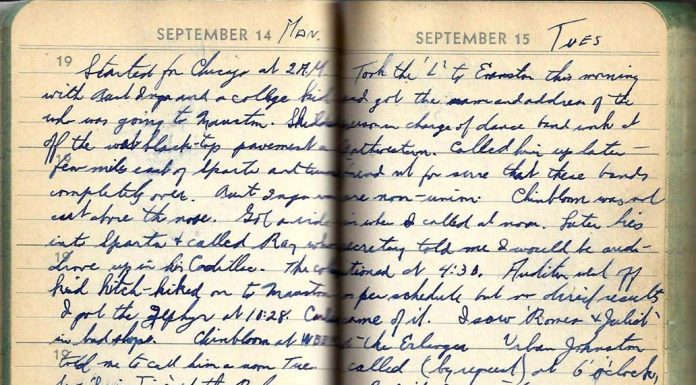 SEPTEMBER 14 Mon.
19
Started for Chicago at 2 A.M.
with Burt Inga and a college kid
who was going to Mauston. Skidded
off the wet black-top pavement a
few miles east of Sparta and turned
completely over. Burt Inga was
cut above the nose. Got a ride
into Sparta & called Ray who
drove up in his Cadillac. The
kid hitch-hiked on to Mauston
I got the Zephyr at 10:28.
in bad shape. Chinbloom at WBBM
told me to call him at noon Tues.
SEPTEMBER 15 TUES
Took the 'L' to Evanston this morning
and got the name and address of the
person in charge of dance band work at
Northwestern. Called him up later–
and not for sure that these bands
are non-union. Chinbloom was not
in when I called at noon. Later his
secretary told me I would be audi-
tioned at 4:30. Audition went off
as per schedule but no direct results
came of it. I saw 'Romeo & Juliet'
at the Erlanger. Urban Johnston
called (by request) at 6 o'clock